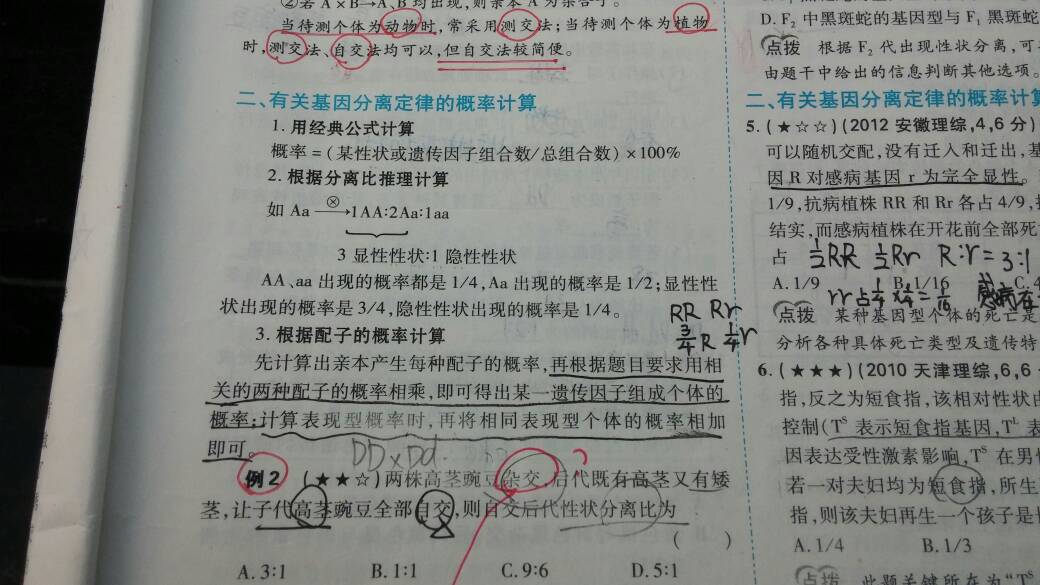 ②若 A×B→A、B 均出现,则亲本 A 为杂合子。
当待测个体为动物时,常采用测交法;当待测个体为植物
时,测交法、自交法均可以,但自交法较简便。
二、有关基因分离定律的概率计算
1. 用经典公式计算
概率=(某性状或遗传因子组合数/总组合数)×100%
2. 根据分离比推理计算
如 Aa ⊗→1AA:2Aa:1aa
3 显性性状:1 隐性性状
AA、aa 出现的概率都是 1/4,Aa 出现的概率是 1/2;显性性
状出现的概率是 3/4,隐性性状出现的概率是 1/4。
RR Rr
3. 根据配子的概率计算
3/4 R 1/4 r
先计算出亲本产生每种配子的概率,再根据题目要求用相
关的两种配子的概率相乘,即可得出某一遗传因子组成个体的
概率;计算表现型概率时,再将相同表现型个体的概率相加
即可。
DD×Dd
例2 (★★☆)两株高茎豌豆杂交,后代既有高茎又有矮
茎,让子代高茎豌豆全部自交,则自交后代性状分离比为
( )
A. 3:1 B. 1:1 C. 9:6 D. 5:1
D. F₂ 中黑斑蛇的基因型与 F₁ 黑斑蛇
点拨 根据 F₂ 代出现性状分离,可
由题干中给出的信息判断其他选项。
二、有关基因分离定律的概率计
5. (★☆☆)(2012 安徽理综,4,6 分)
可以随机交配,没有迁入和迁出,基
因 R 对感病基因 r 为完全显性。
1/9,抗病植株 RR 和 Rr 各占 4/9,
结实,而感病植株在开花前全部死
占 1/2RR 1/2Rr R:r=3:1
A. 1/9 B. 1/16 C. 4
rr占1/4×1/4=1/16 感病
点拨 某种基因型个体的死亡是
分析各种具体死亡类型及遗传特
6. (★★★)(2010 天津理综,6,6
指,反之为短食指,该相对性状
控制(Tˢ 表示短食指基因,Tᴸ 表
因表达受性激素影响,Tˢ 在男
若一对夫妇均为短食指,所生
指,则该夫妇再生一个孩子是
A. 1/4 B. 1/3
点拨 此题关键所在为“Tˢ